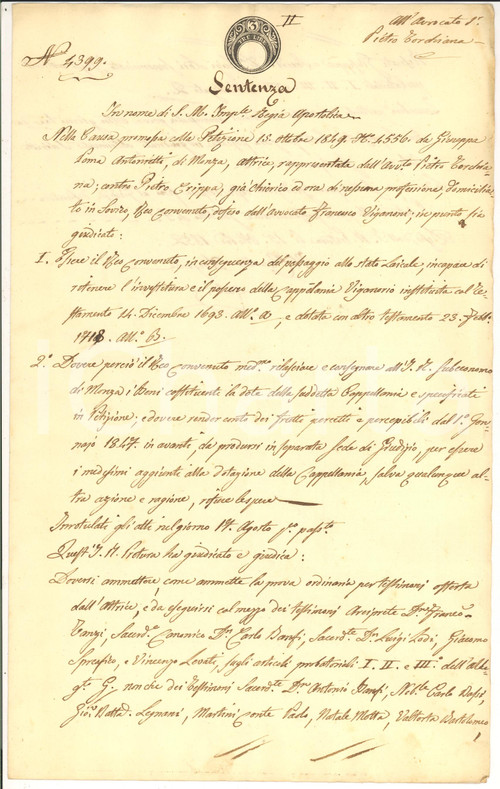 II
All' Avvocato Sr.
Pietro Torchiana
No 4399.
3
Sentenza
In nome di S. M. Imple. Regia Apostolica
Nella Causa promossa colla Petizione 15. ottobre 1849. No. 4556. da Giuseppa
Toma Antonietti, di Monza, attrice, rappresentata dall' Avvto. Pietro Torchia-
na; contro Pietro Crippa, già chierico ed ora di nessuna professione, domicilia-
to in Sovico, Reo Convenuto, difeso dall' avvocato Francesco Viganoni; in punto sia
giudicato:
I. Essere il Reo Convenuto, in conseguenza del passaggio allo stato Laicale, incapace di
ritenere l' investitura e il possesso della Cappellania Viganerio instituita col Te-
stamento 14. Dicembre 1693. all.o A., e dotata con altro testamento 23. Febbo.
1718. all.o B.
2.o Dovere perciò il Reo convenuto medmo. rilasciare e consegnare all' I. R. Subeconomo
di Monza i beni costituenti la dote della suddetta Cappellania e specificati
in Petizione; e dovere render conto dei frutti percetti e percepibili dal 1o. Gen-
najo 1847. in avanti, da prodursi in separata sede di Giudizio, per essere
i medesimi aggiunti alla dotazione della Cappellania, salva qualunque al-
tra azione e ragione, rifuse le spese
Inrotulati gli atti nel giorno 17. Agosto po. passo.
Quest' I. R. Pretura ha giudicato e giudica:
Doversi ammettere, come ammette la prova ordinaria per testimonj offerta
dall' attrice, e da eseguirsi col mezzo dei testimonj Arciprete Dn. Franco.
Tanzi, Sacerde. Canonico Dn. Carlo Banfi, Sacerdte. Dn. Luigi Lodi, Giacomo
Spreafico, e Vincenzo Levati, sugli articoli probatoriali I. II. e III.o dell' alle-
gto. G. non che dei Testimonj Sacerdte. Dn. Antonio Banfi, Nobile Carlo Bassi,
Gio. Batta. Legnani, Martini Conte Paolo, Natale Motta, Valtorta Bartolomeo,